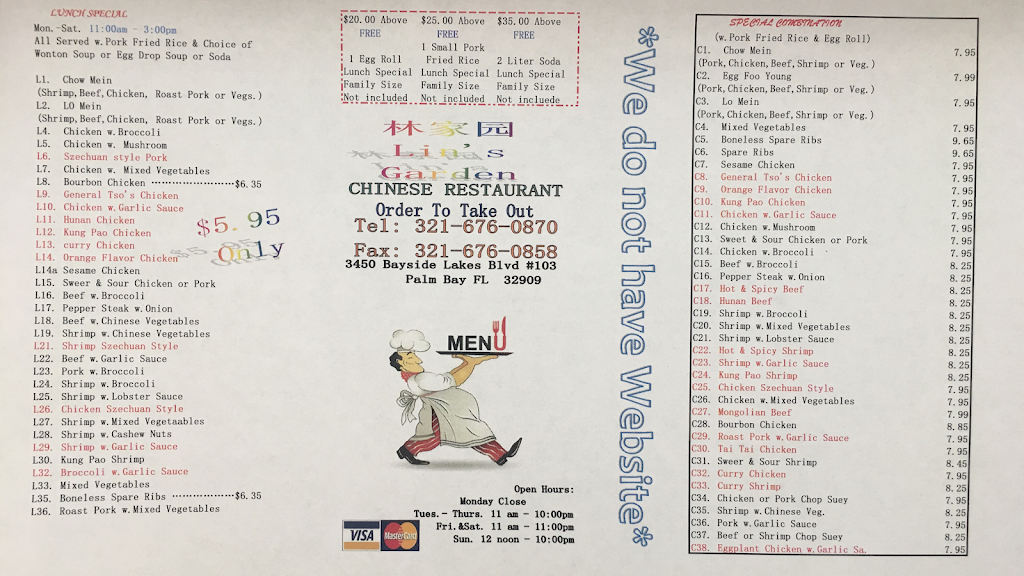 LUNCH SPECIAL
Mon.-Sat. 11:00am - 3:00pm
All Served w.Pork Fried Rice & Choice of
Wonton Soup or Egg Drop Soup or Soda
L1. Chow Mein
(Shrimp,Beef,Chicken, Roast Pork or Vegs.)
L2. LO Mein
(Shrimp,Beef,Chicken, Roast Pork or Vegs.)
L4. Chicken w.Broccoli
L5. Chicken w. Mushroom
L6. Szechuan style Pork
L7. Chicken w. Mixed Vegetables
L8. Bourbon Chicken ························$6.35
L9. General Tso's Chicken
L10. Chicken w.Garlic Sauce
L11. Hunan Chicken
L12. Kung Pao Chicken
L13. curry Chicken
L14. Orange Flavor Chicken
L14a Sesame Chicken
L15. Sweer & Sour Chicken or Pork
L16. Beef w.Broccoli
L17. Pepper Steak w.Onion
L18. Beef w.Chinese Vegetables
L19. Shrimp w.Chinese Vegetables
L21. Shrimp Szechuan Style
L22. Beef w.Garlic Sauce
L23. Pork w.Broccoli
L24. Shrimp w.Broccoli
L25. Shrimp w.Lobster Sauce
L26. Chicken Szechuan Style
L27. Shrimp w.Mixed Vegetaables
L28. Shrimp w.Cashew Nuts
L29. Shrimp w.Garlic Sauce
L30. Kung Pao Shrimp
L32. Broccoli w.Garlic Sauce
L33. Mixed Vegetables
L35. Boneless Spare Ribs ················$6.35
L36. Roast Pork w.Mixed Vegetables
$5.95
Only
$20.00 Above $25.00 Above $35.00 Above
FREE FREE FREE
1 Small Pork
1 Egg Roll Fried Rice 2 Liter Soda
Lunch Special Lunch Special Lunch Special
Family Size Family Size Family Size
Not included Not included Not incluede
林家园
Lin's
Garden
CHINESE RESTAURANT
Order To Take Out
Tel: 321-676-0870
Fax: 321-676-0858
3450 Bayside Lakes Blvd #103
Palm Bay FL 32909
MENU
Open Hours:
Monday Close
Tues.- Thurs. 11 am - 10:00pm
Fri.&Sat. 11 am - 11:00pm
Sun. 12 noon - 10:00pm
VISA MasterCard
*We do not have Website*
SPECIAL COMBINATION
(w.Pork Fried Rice & Egg Roll)
C1. Chow Mein 7.95
(Pork,Chicken,Beef,Shrimp or Veg.)
C2. Egg Foo Young 7.99
(Pork,Chicken,Beef,Shrimp or Veg.)
C3. Lo Mein 7.95
(Pork,Chicken,Beef,Shrimp or Veg.)
C4. Mixed Vegetables 7.95
C5. Boneless Spare Ribs 9.65
C6. Spare Ribs 9.65
C7. Sesame Chicken 7.95
C8. General Tso's Chicken 7.95
C9. Orange Flavor Chicken 7.95
C10. Kung Pao Chicken 7.95
C11. Chicken w.Garlic Sauce 7.95
C12. Chicken w.Mushroom 7.95
C13. Sweet & Sour Chicken or Pork 7.95
C14. Chicken w.Broccoli 7.95
C15. Beef w.Broccoli 8.25
C16. Pepper Steak w.Onion 8.25
C17. Hot & Spicy Beef 8.25
C18. Hunan Beef 8.25
C19. Shrimp w.Broccoli 8.25
C20. Shrimp w.Mixed Vegetables 8.25
C21. Shrimp w.Lobster Sauce 8.25
C22. Hot & Spicy Shrimp 8.25
C23. Shrimp w.Garlic Sauce 8.25
C24. Kung Pao Shrimp 8.25
C25. Chicken Szechuan Style 7.95
C26. Chicken w.Mixed Vegetables 7.95
C27. Mongolian Beef 7.99
C28. Bourbon Chicken 8.85
C29. Roast Pork w.Garlic Sauce 7.95
C30. Tai Tai Chicken 7.95
C31. Sweer & Sour Shrimp 8.45
C32. Curry Chicken 7.95
C33. Curry Shrimp 8.25
C34. Chicken or Pork Chop Suey 7.95
C35. Shrimp w.Chinese Veg. 8.25
C36. Pork w.Garlic Sauce 7.95
C37. Beef or Shrimp Chop Suey 8.25
C38. Eggplant Chicken w.Garlic Sa. 7.95